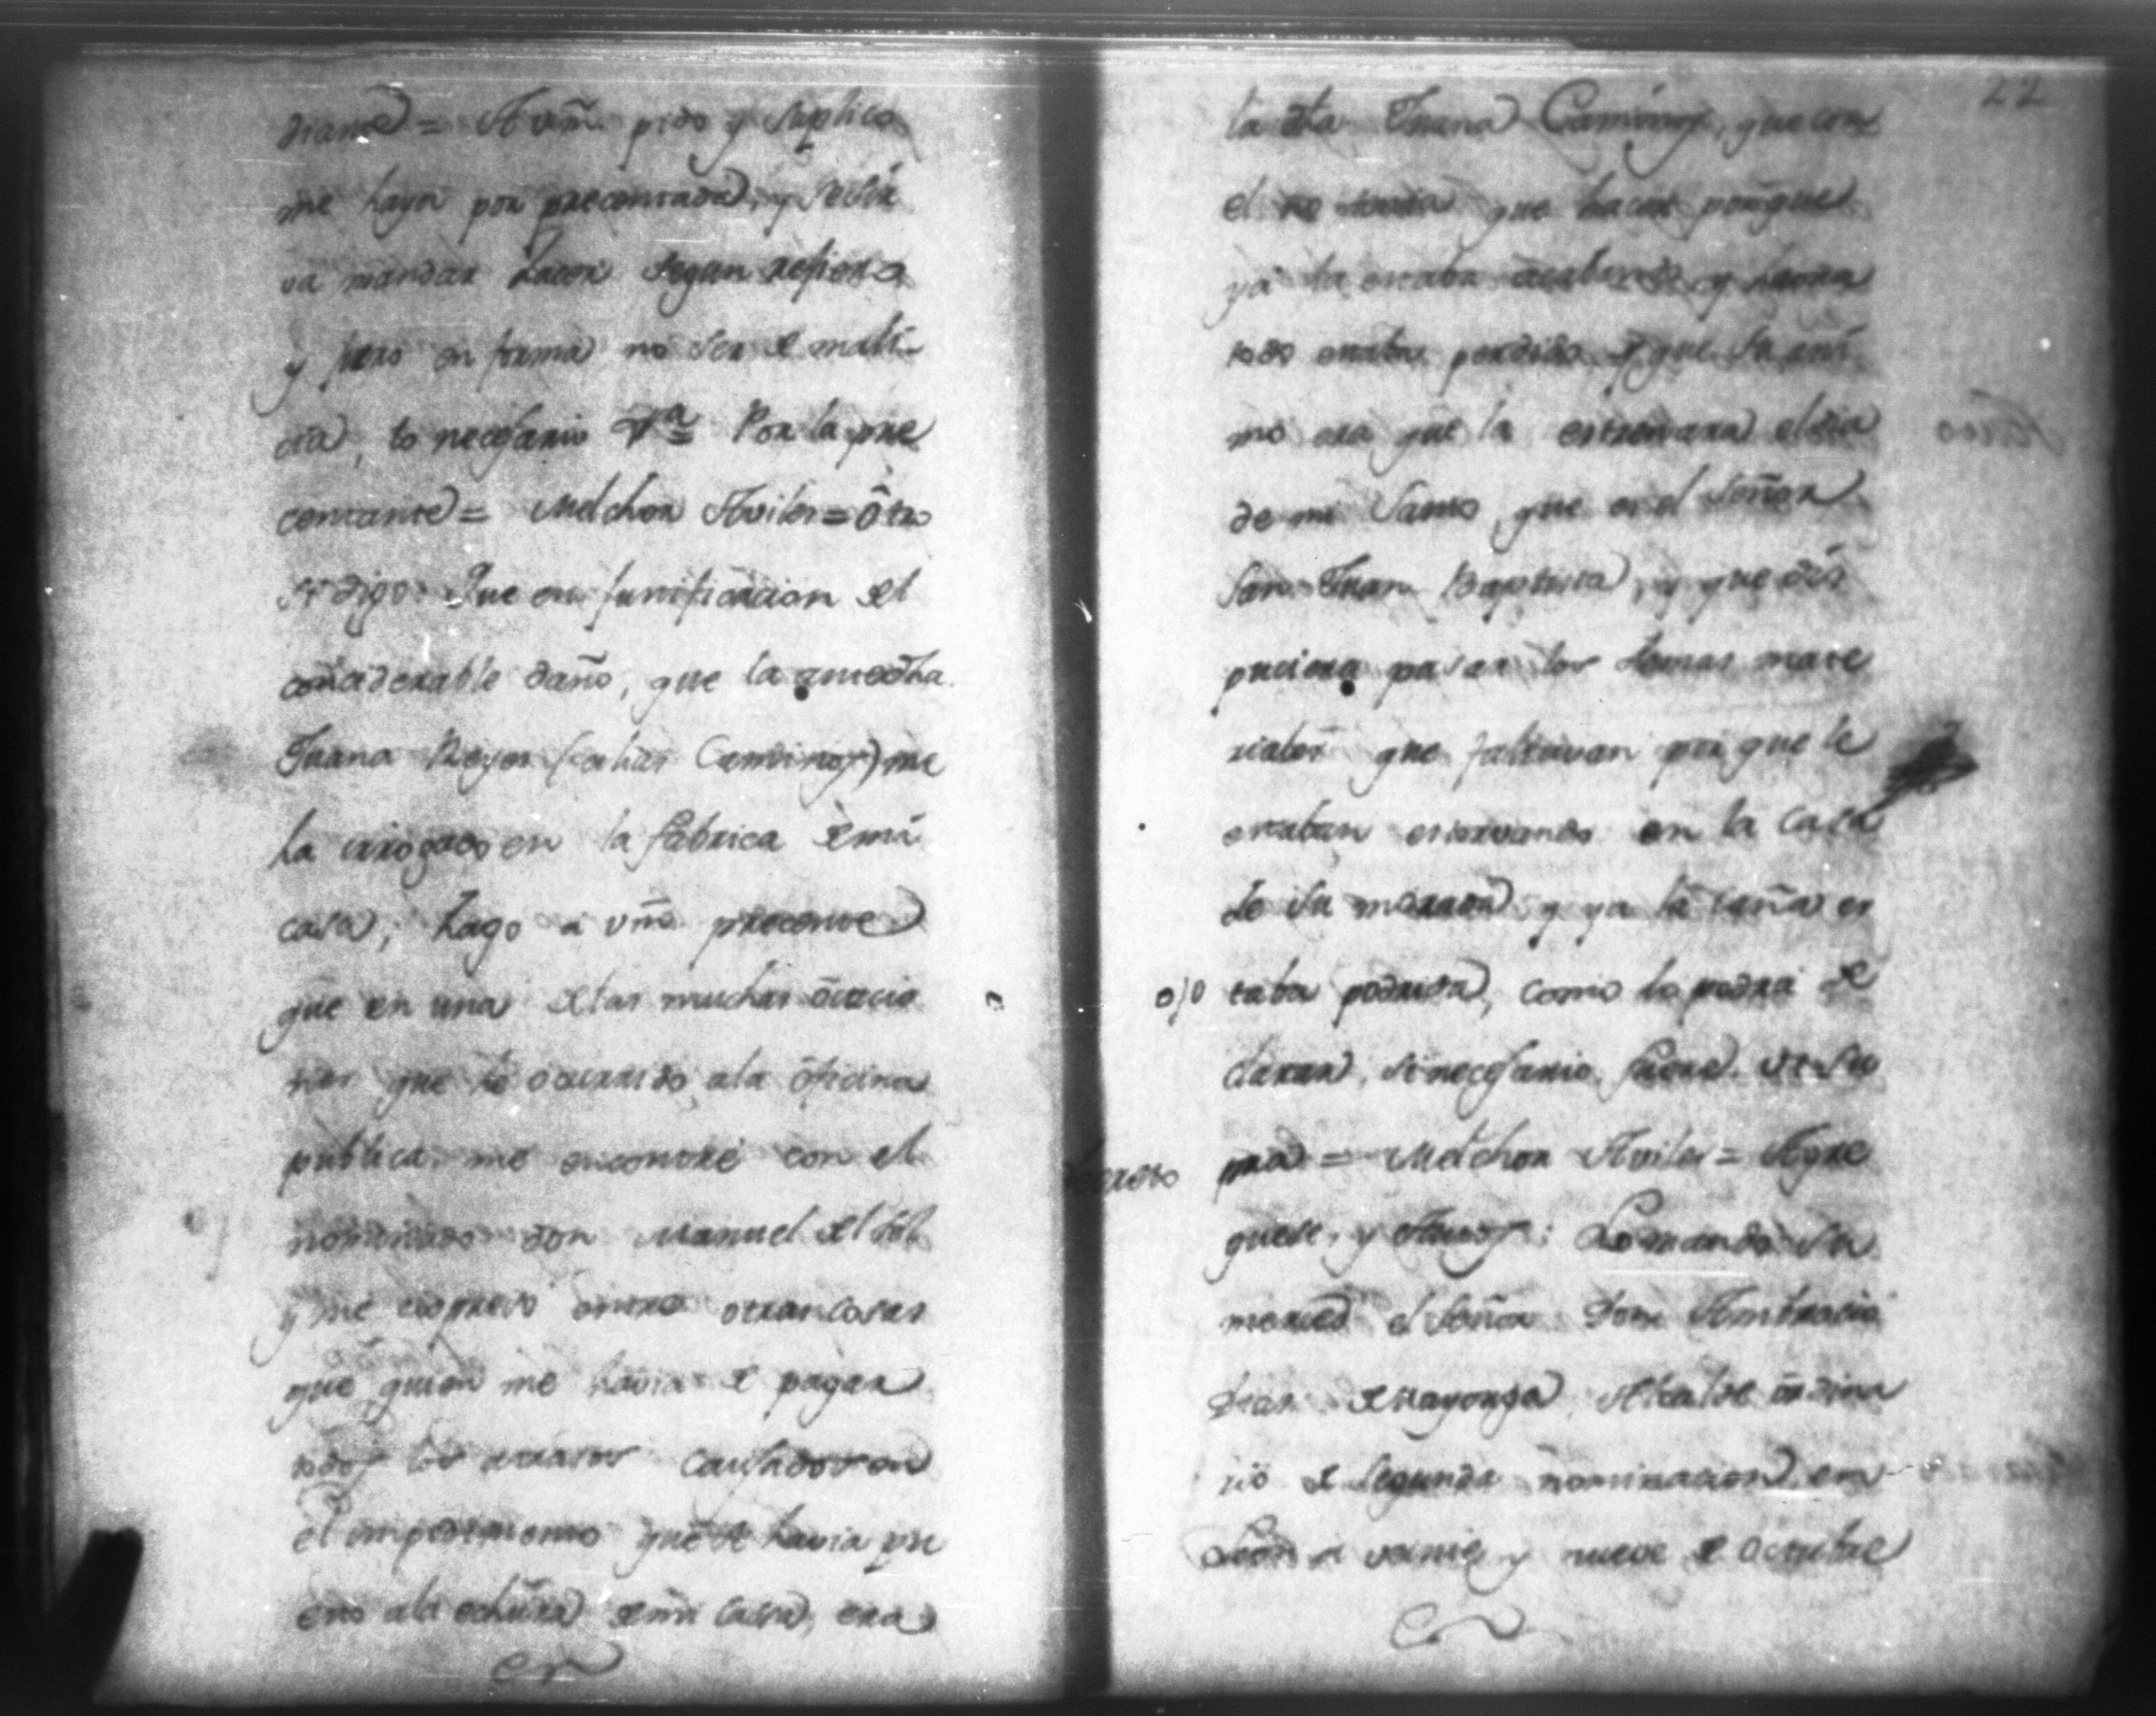 diante = A vm̃ pido y suplico
me haya por precentada, y se cir
va mandar hacer segun refiero
y juro en forma no ser de mali-
cia, lo necesario Vª Por la pre
centante = Melchor Aviles = Otro
si digo: Que en justificacion del
conciderable daño, que la antedha
Juana Reyes (alias Caminos) me
ha irrogado en la fabrica de mi
casa, hago a vm̃ precente
que en una de las muchas ocacio
nes que he ocurrido a la oficina
publica, me encontré con el
nominado don Manuel del Sol
y me expresó entre otras cosas
que quien me havia de pagar
todos los atrasos causados en
el impedimento que se havia pu
esto a la echura de mi casa, era
22
la dha Juana Caminos, que con
el no tenia que hacer porque
ya la estaba acabando y
todo estaba perdido, que su ani
mo era que la estrenara el dia
de mi Santo, que es el Señor
San Juan Baptista, y que dis
puciera pasar los demas mate
riales que faltavan por que le
estaban estorvando en la casa
de su morada, y ya la caña es
taba podrida, como lo podra de
clarar, si necesario fuere. Ut su
pra = Melchor Aviles = Agre
guese, y Autos: Lo mando su
merced el Señor Don Ambracio
de Mayorga Alcalde ordina
rio de segunda nominacion en
Leon a veinte y nueve de octubre